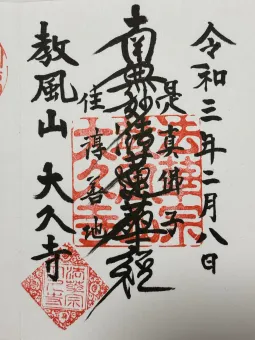 令和三年二月八日
是真佛子
南無妙法蓮華經
住淳善地
教風山 大久寺
法華宗
大久寺